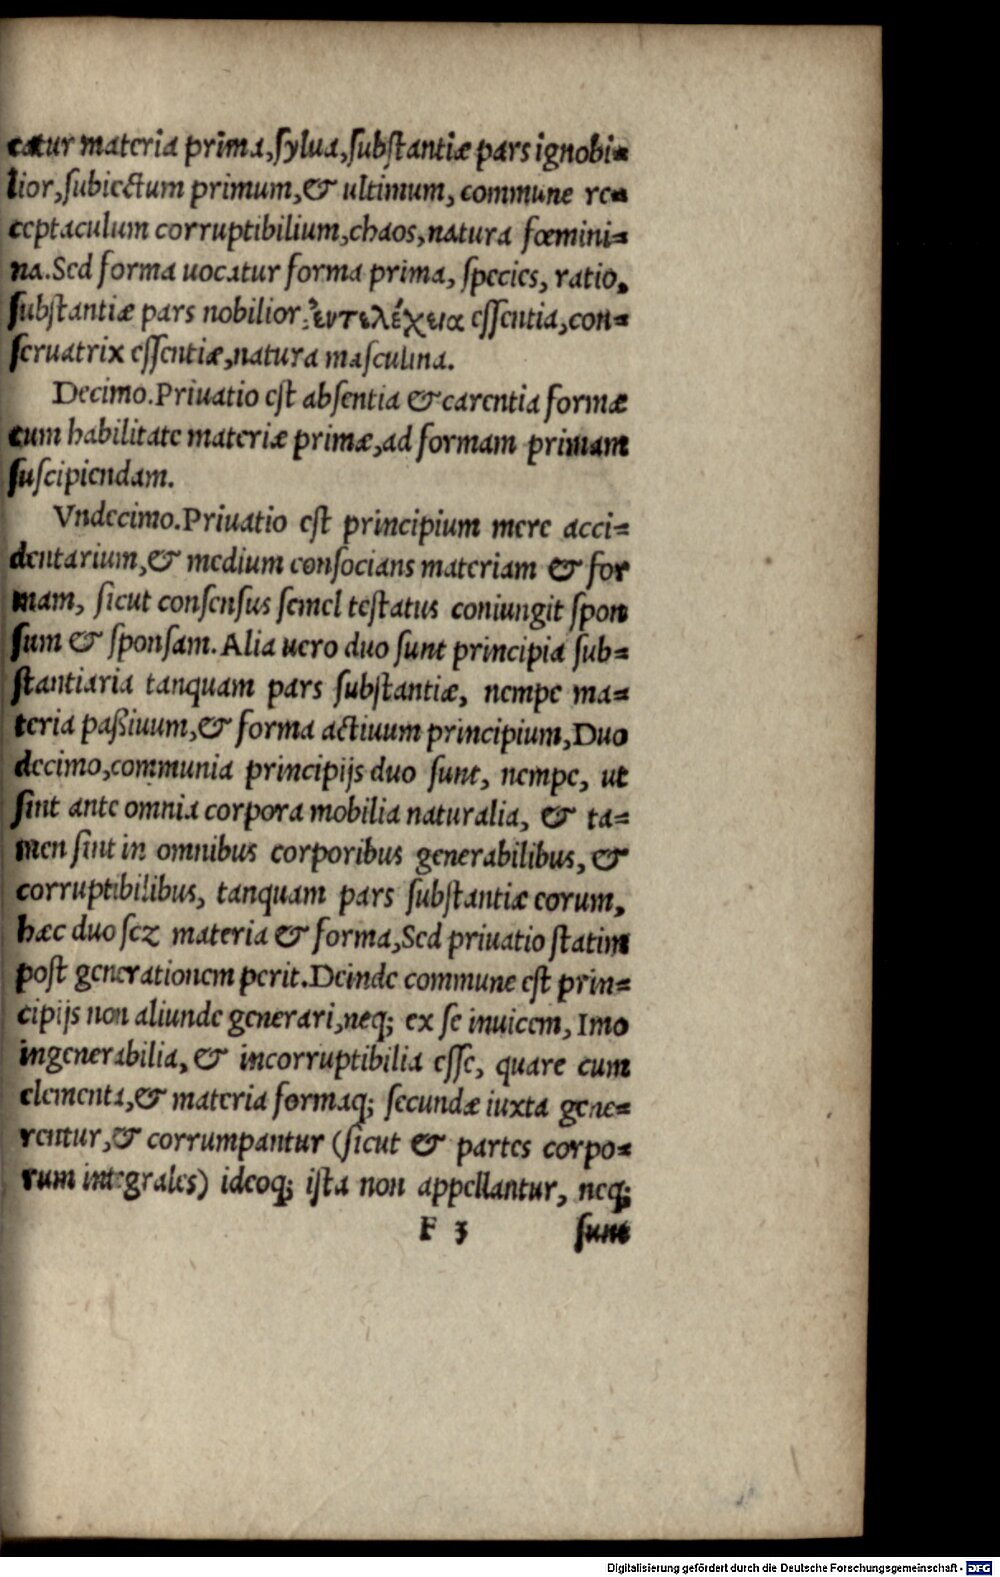 catur materia prima, sylua, substantiæ pars ignobi=
lior, subiectum primum, & ultimum, commune re=
ceptaculum corruptibilium, chaos, natura fœmini=
na. Sed forma uocatur forma prima, species, ratio,
substantiæ pars nobilior, ἐντελέχεια essentia, con=
seruatrix essentiæ, natura masculina.
Decimo. Priuatio est absentia & carentia formæ
cum habilitate materiæ primæ, ad formam primam
suscipiendam.
Vndecimo. Priuatio est principium mere acci=
dentarium, & medium consocians materiam & for
mam, sicut consensus semel testatus coniungit spon
sum & sponsam. Alia uero duo sunt principia sub=
stantiaria tanquam pars substantiæ, nempe ma=
teria paßiuum, & forma actiuum principium, Duo
decimo, communia principijs duo sunt, nempe, ut
sint ante omnia corpora mobilia naturalia, & ta=
men sint in omnibus corporibus generabilibus, &
corruptibilibus, tanquam pars substantiæ eorum,
hæc duo scz materia & forma, Sed priuatio statim
post generationem perit. Deinde commune est prin=
cipijs non aliunde generari, neq; ex se inuicem, Imo
ingenerabilia, & incorruptibilia esse, quare cum
elementa, & materia formaq; secundæ iuxta gene=
rentur, & corrumpantur (sicut & partes corpo=
rum integrales) ideoq; ista non appellantur, neq;
F 3 sunt
Digitalisierung gefördert durch die Deutsche Forschungsgemeinschaft - DFG